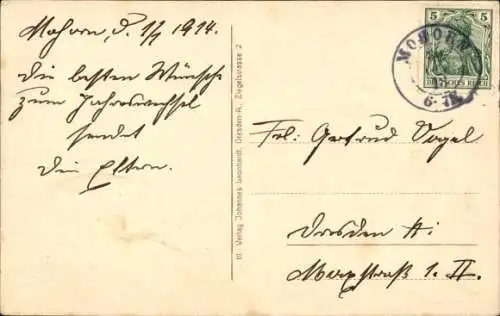 Mohorn, d. 1/1 1914.
Die besten Wünsche
zum Jahreswechsel
sendet
die Eltern.
III Verlag Johannes Leonhardt, Dresden-A., Ziegelstrasse 2
5 5
DEUTSCHES REICH
MOHORN
6-7N.
Frl. Gertrud Vogel
Dresden A:
Marxstraß 1. II.